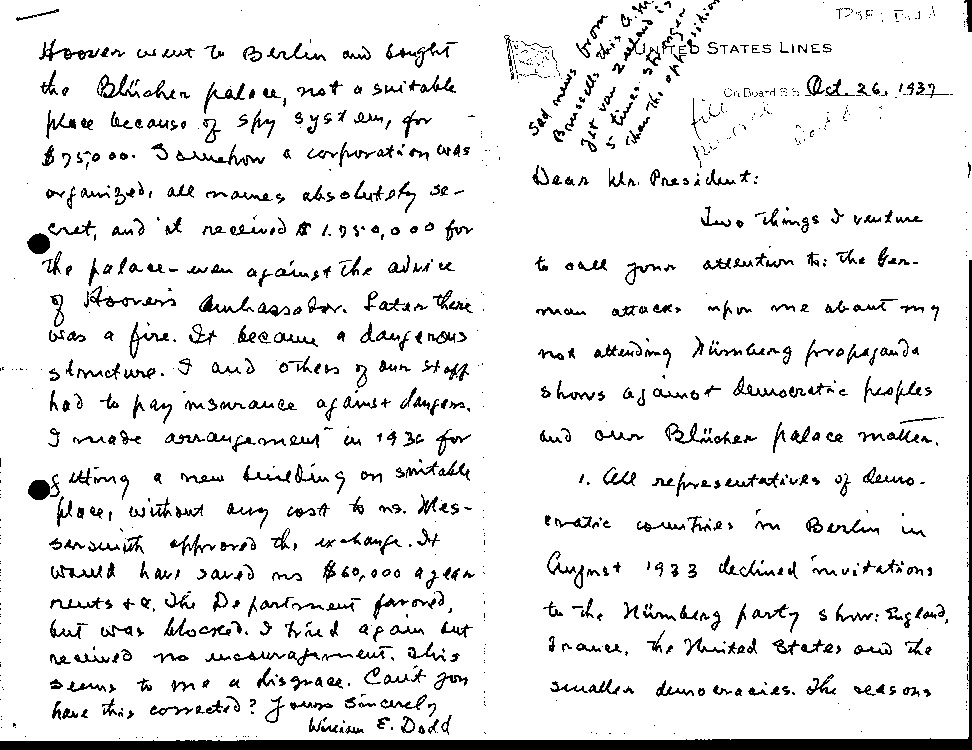 Hoover went to Berlin and bought
the Blücher palace, not a suitable
place because of spy system, for
$75,000. Somehow a corporation was
organized, all names absolutely se-
cret, and it received $1,750,000 for
the palace – even against the advice
of Hoover's Ambassador. Later there
was a fire. It became a dangerous
structure. I and others of our staff
had to pay insurance against dangers.
I made arrangement in 1936 for
getting a new building on suitable
place, without any cost to us. Mes-
sersmith approved the exchange. It
would have saved us $60,000 a year
rents &c. The Department favored,
but was blocked. I tried again but
received no encouragement. This
seems to me a disgrace. Can't you
have this corrected? Yours Sincerely
William E. Dodd
PSF: Dodd
Sad news from
Brussells this a.m.
yet van Zeeland is
5 times stronger
than the opposition
UNITED STATES LINES
On Board S.S. Oct. 26, 1937
file
personal
Dodd
Dear Mr. President:
Two things I venture
to call your attention to: the Ger-
man attacks upon me about my
not attending Nürnberg propaganda
shows against democratic peoples
and our Blücher palace matter.
1. All representatives of demo-
cratic countries in Berlin in
August 1933 declined invitations
to the Nürnberg party show: England,
France, the United States and the
smaller democracies. The reasons